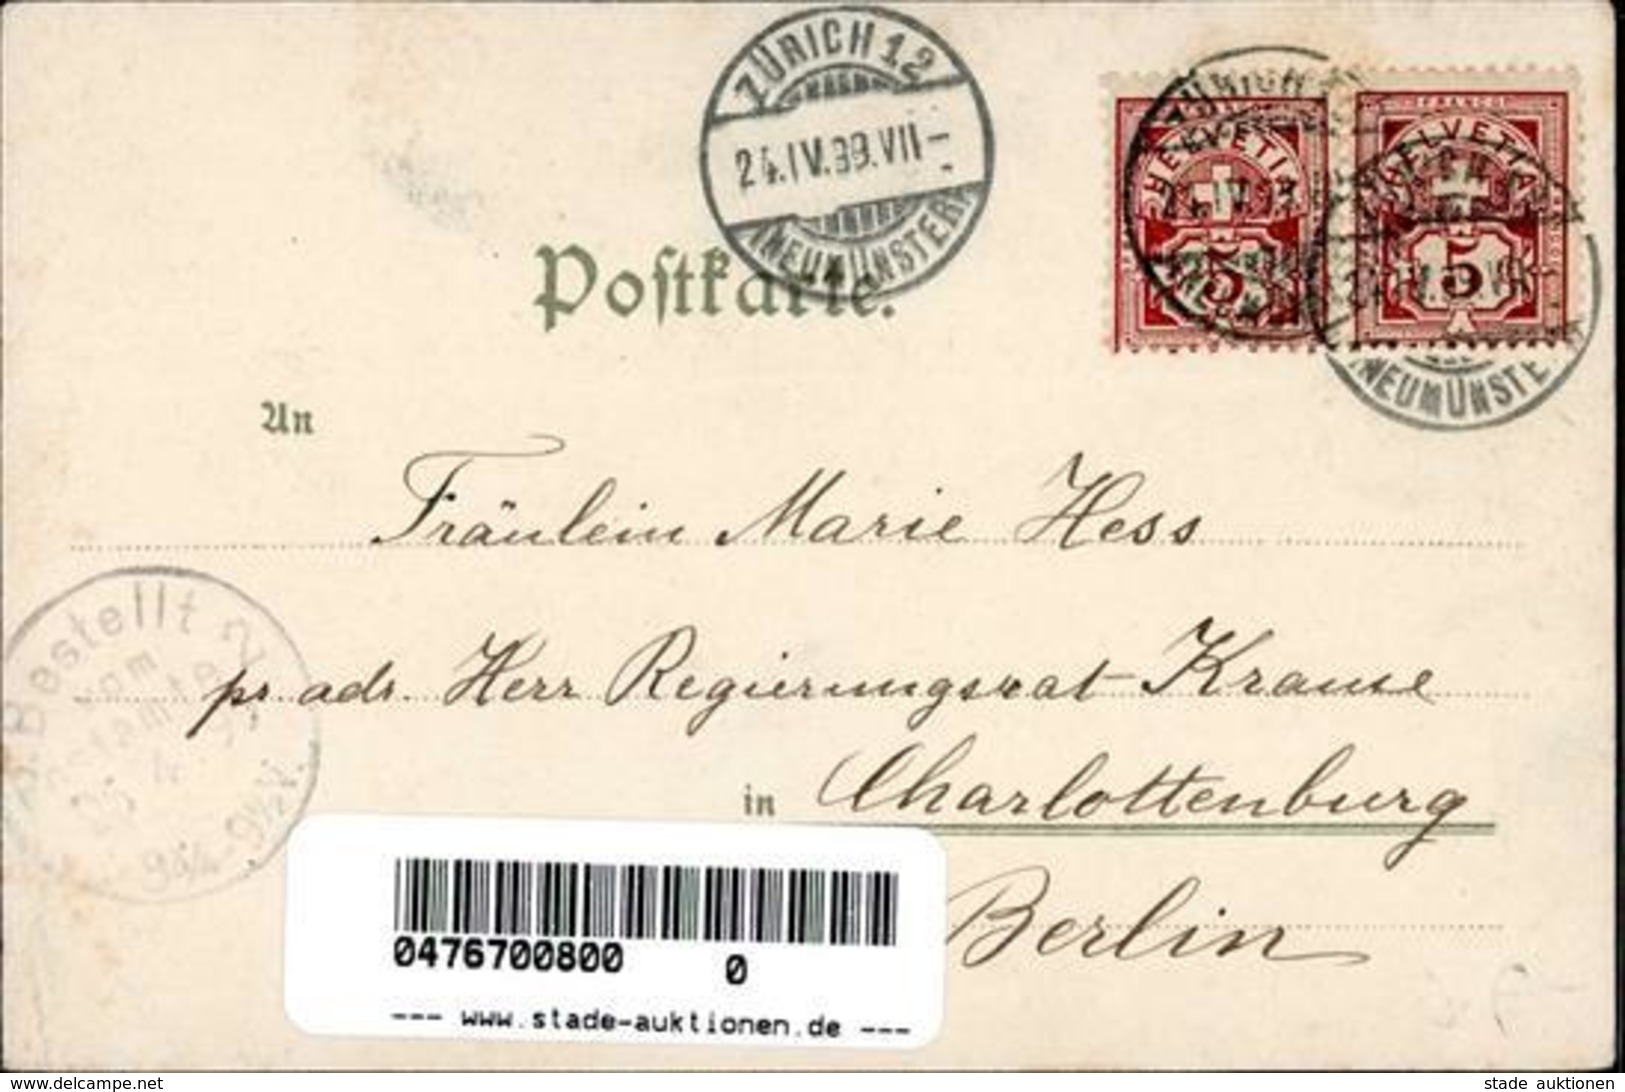 ZÜRICH 12
24.IV.99.VII-
(NEUMÜNSTER)
HELVETIA
5
FRANCO
HELVETIA
5
(NEUMÜNSTE
Postkarte.
An
Fräulein Marie Hess
pr. adr. Herr Regierungsrat Krause
in Charlottenburg
Berlin
Bestellt
vom
Postamte 2
25 4
9¼-9½V.
0476700800 0
--- www.stade-auktionen.de ---
www.delcampe.net
stade auktionen